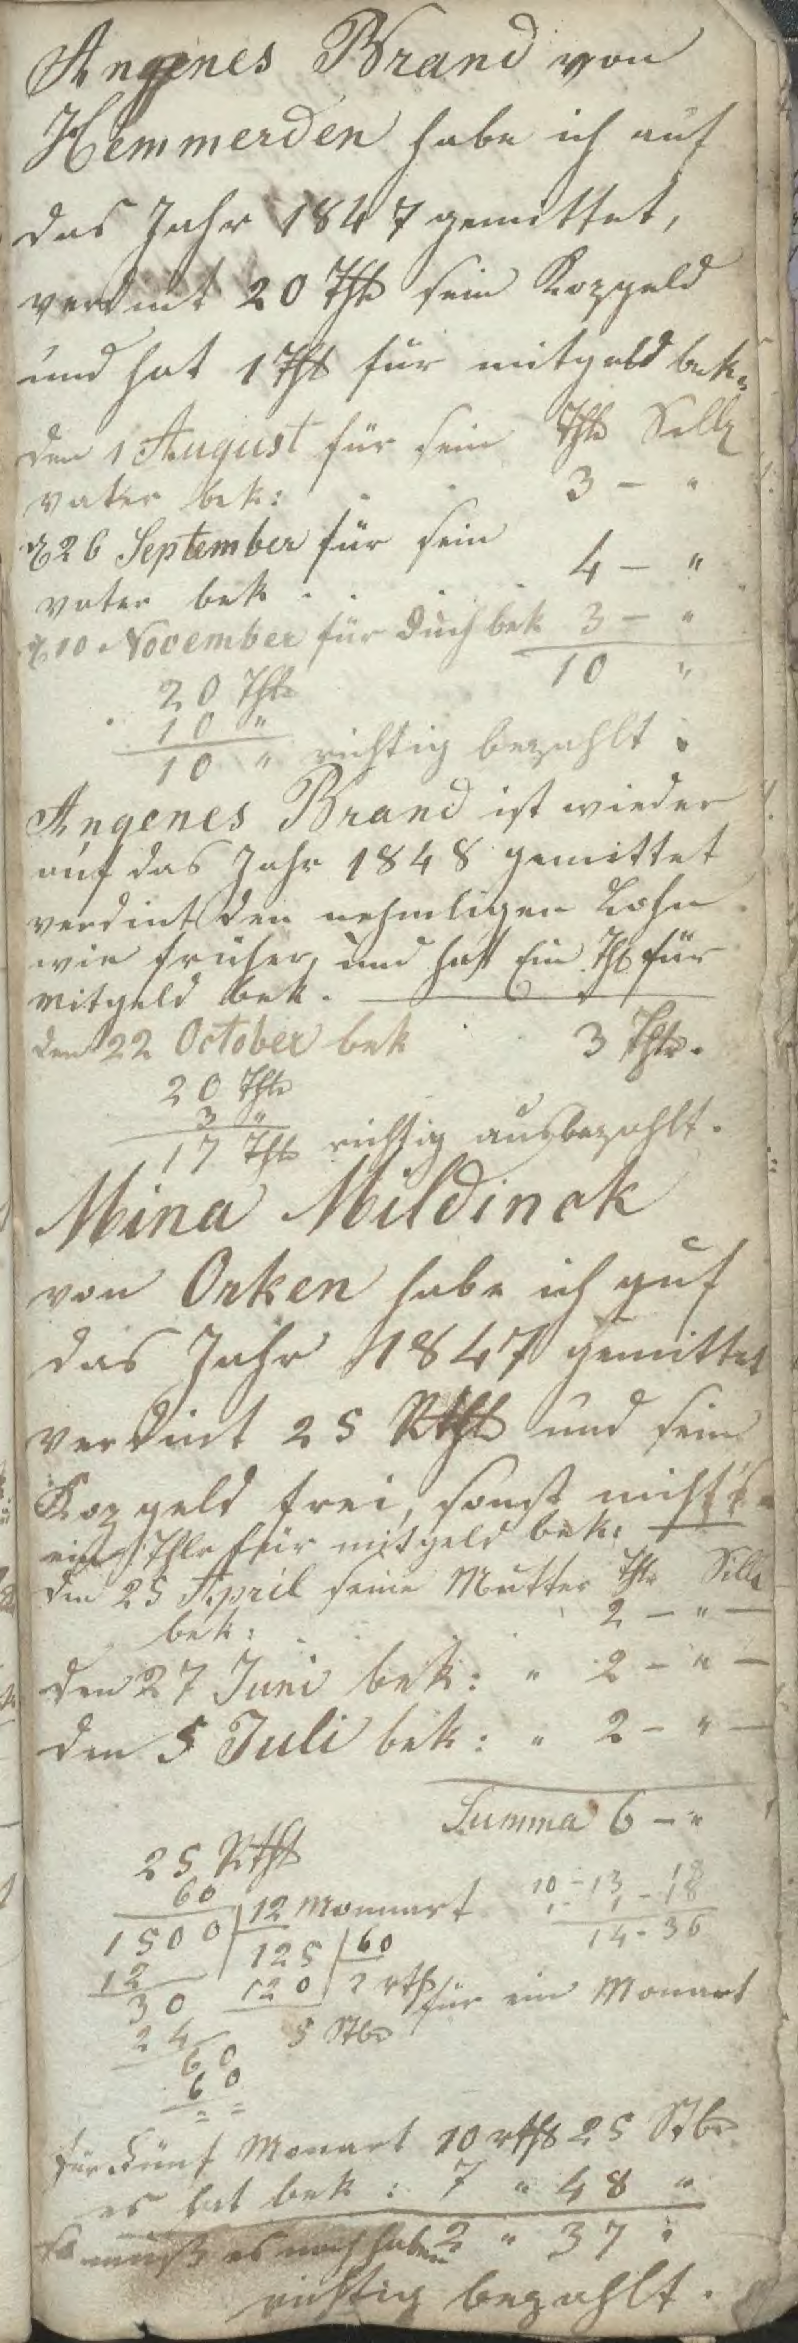 Angenes Brand von
Hemmerden habe ich auf
das Jahr 1847 gemittet,
verdint 20 Thlr sein Kopgeld
und hat 1 Thlr für mitgeld bek:
den 1 August für sein Thlr Sillb
vater bek: . . 3 – "
d 26 September für sein
vater bek . . . 4 – "
d 10 November für duch bek 3 – "
20 Thlr 10 "
10 "
10 " richtig bezahlt .
Angenes Brand ist wieder
auf das Jahr 1848 gemittet
verdint den nehmligen Lohn
wie früher, und hat Ein Thl für
Mitgeld bek.
den 22 October bek 3 Thlr.
20 Thlr
3 "
17 Thlr richtig ausbezahlt.
Mina Mildinck
von Orken habe ich auf
das Jahr 1847 gemittet
verdint 25 Rthl und sein
Kopgeld frei, sonst nichts
ein Thlr für mitgeld bek:
den 25 April seine Mutter Thlr Sillb
bek: . 2 – " –
den 27 Juni bek: " 2 – " –
den 5 Juli bek: " 2 – " –
Summa 6 – "
25 Rthl
60
1500 | 12 Monnart 10 – 13 18
12 125 | 60 1 – 1 – 18
30 120 | 2 rth 14 – 36
24 5 Stbr für ein Monart
60
60
= =
für Fünf Monart 10 rthl 25 Stbr
es hat bek: 7 " 48 "
so muß es noch haben 2 " 37 "
richtig bezahlt.